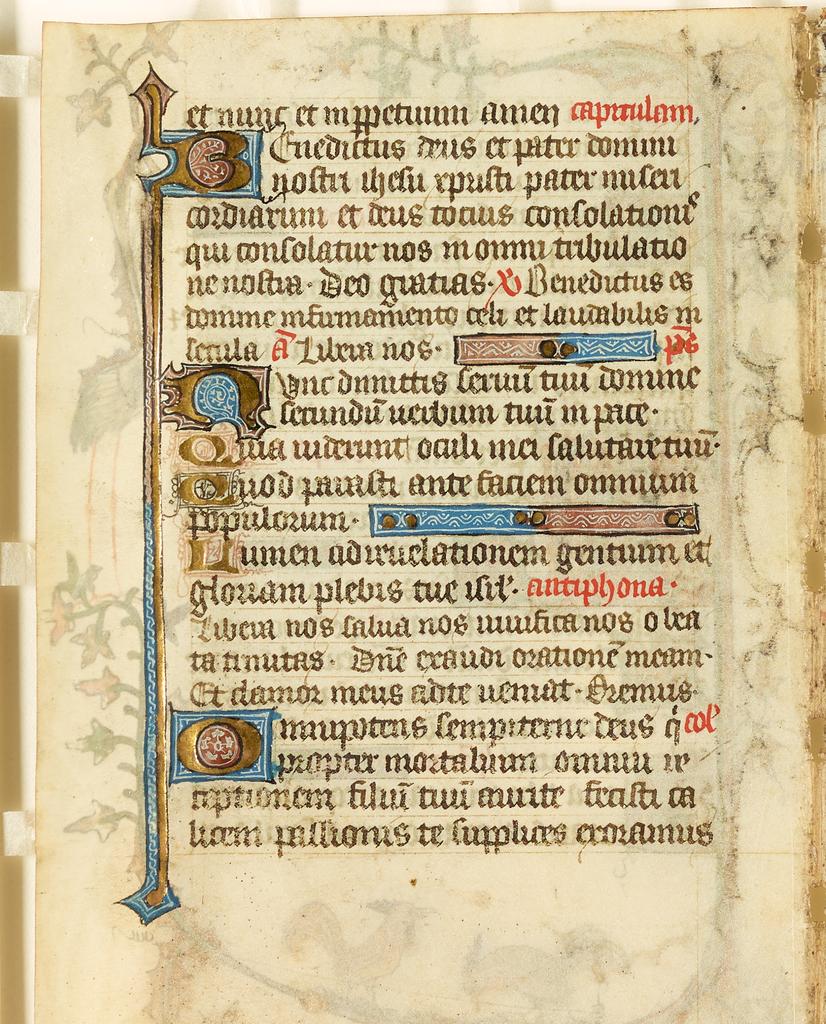 et nunc et inppetuum amen capitulum,
Benedictus deus et pater domini
nostri ihesu xpristi pater miseri
cordiarum et deus tocius consolationis
qui consolatur nos in omni tribulatio
ne nostra· Deo gratias· v Benedictus es
domine infirmamento celi et laudabilis in
secula a Libera nos· ps
Nunc dimittis seruū tuū domine
secundū uerbum tuū in pace·
Quia uiderunt oculi mei salutare tuū·
Quod parasti ante faciem omnium
populorum·
Lumen adreuelationem gentium et
gloriam plebis tue isrl'· antiphona·
Libera nos salua nos iustifica nos o bea
ta trinitas· Dnē exaudi orationē meam·
Et clamor meus adte ueniat· Oremus·
Omnipotens sempiterne deus q̇ col'
propter mortalium omniū re
emptionem filiū tuū aurite fecisti ca
licem passionis te supplices exoramus